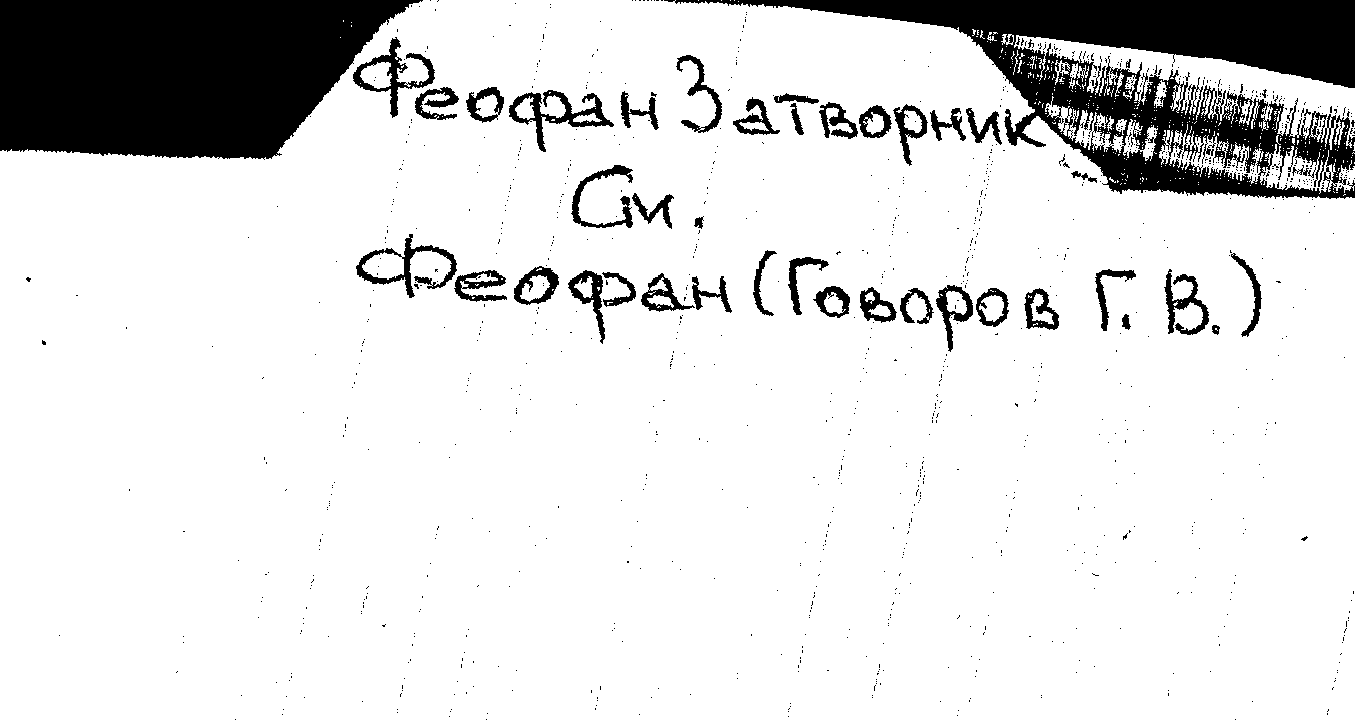 Феофан Затворник
См.
Феофан (Говоров Г. В.)